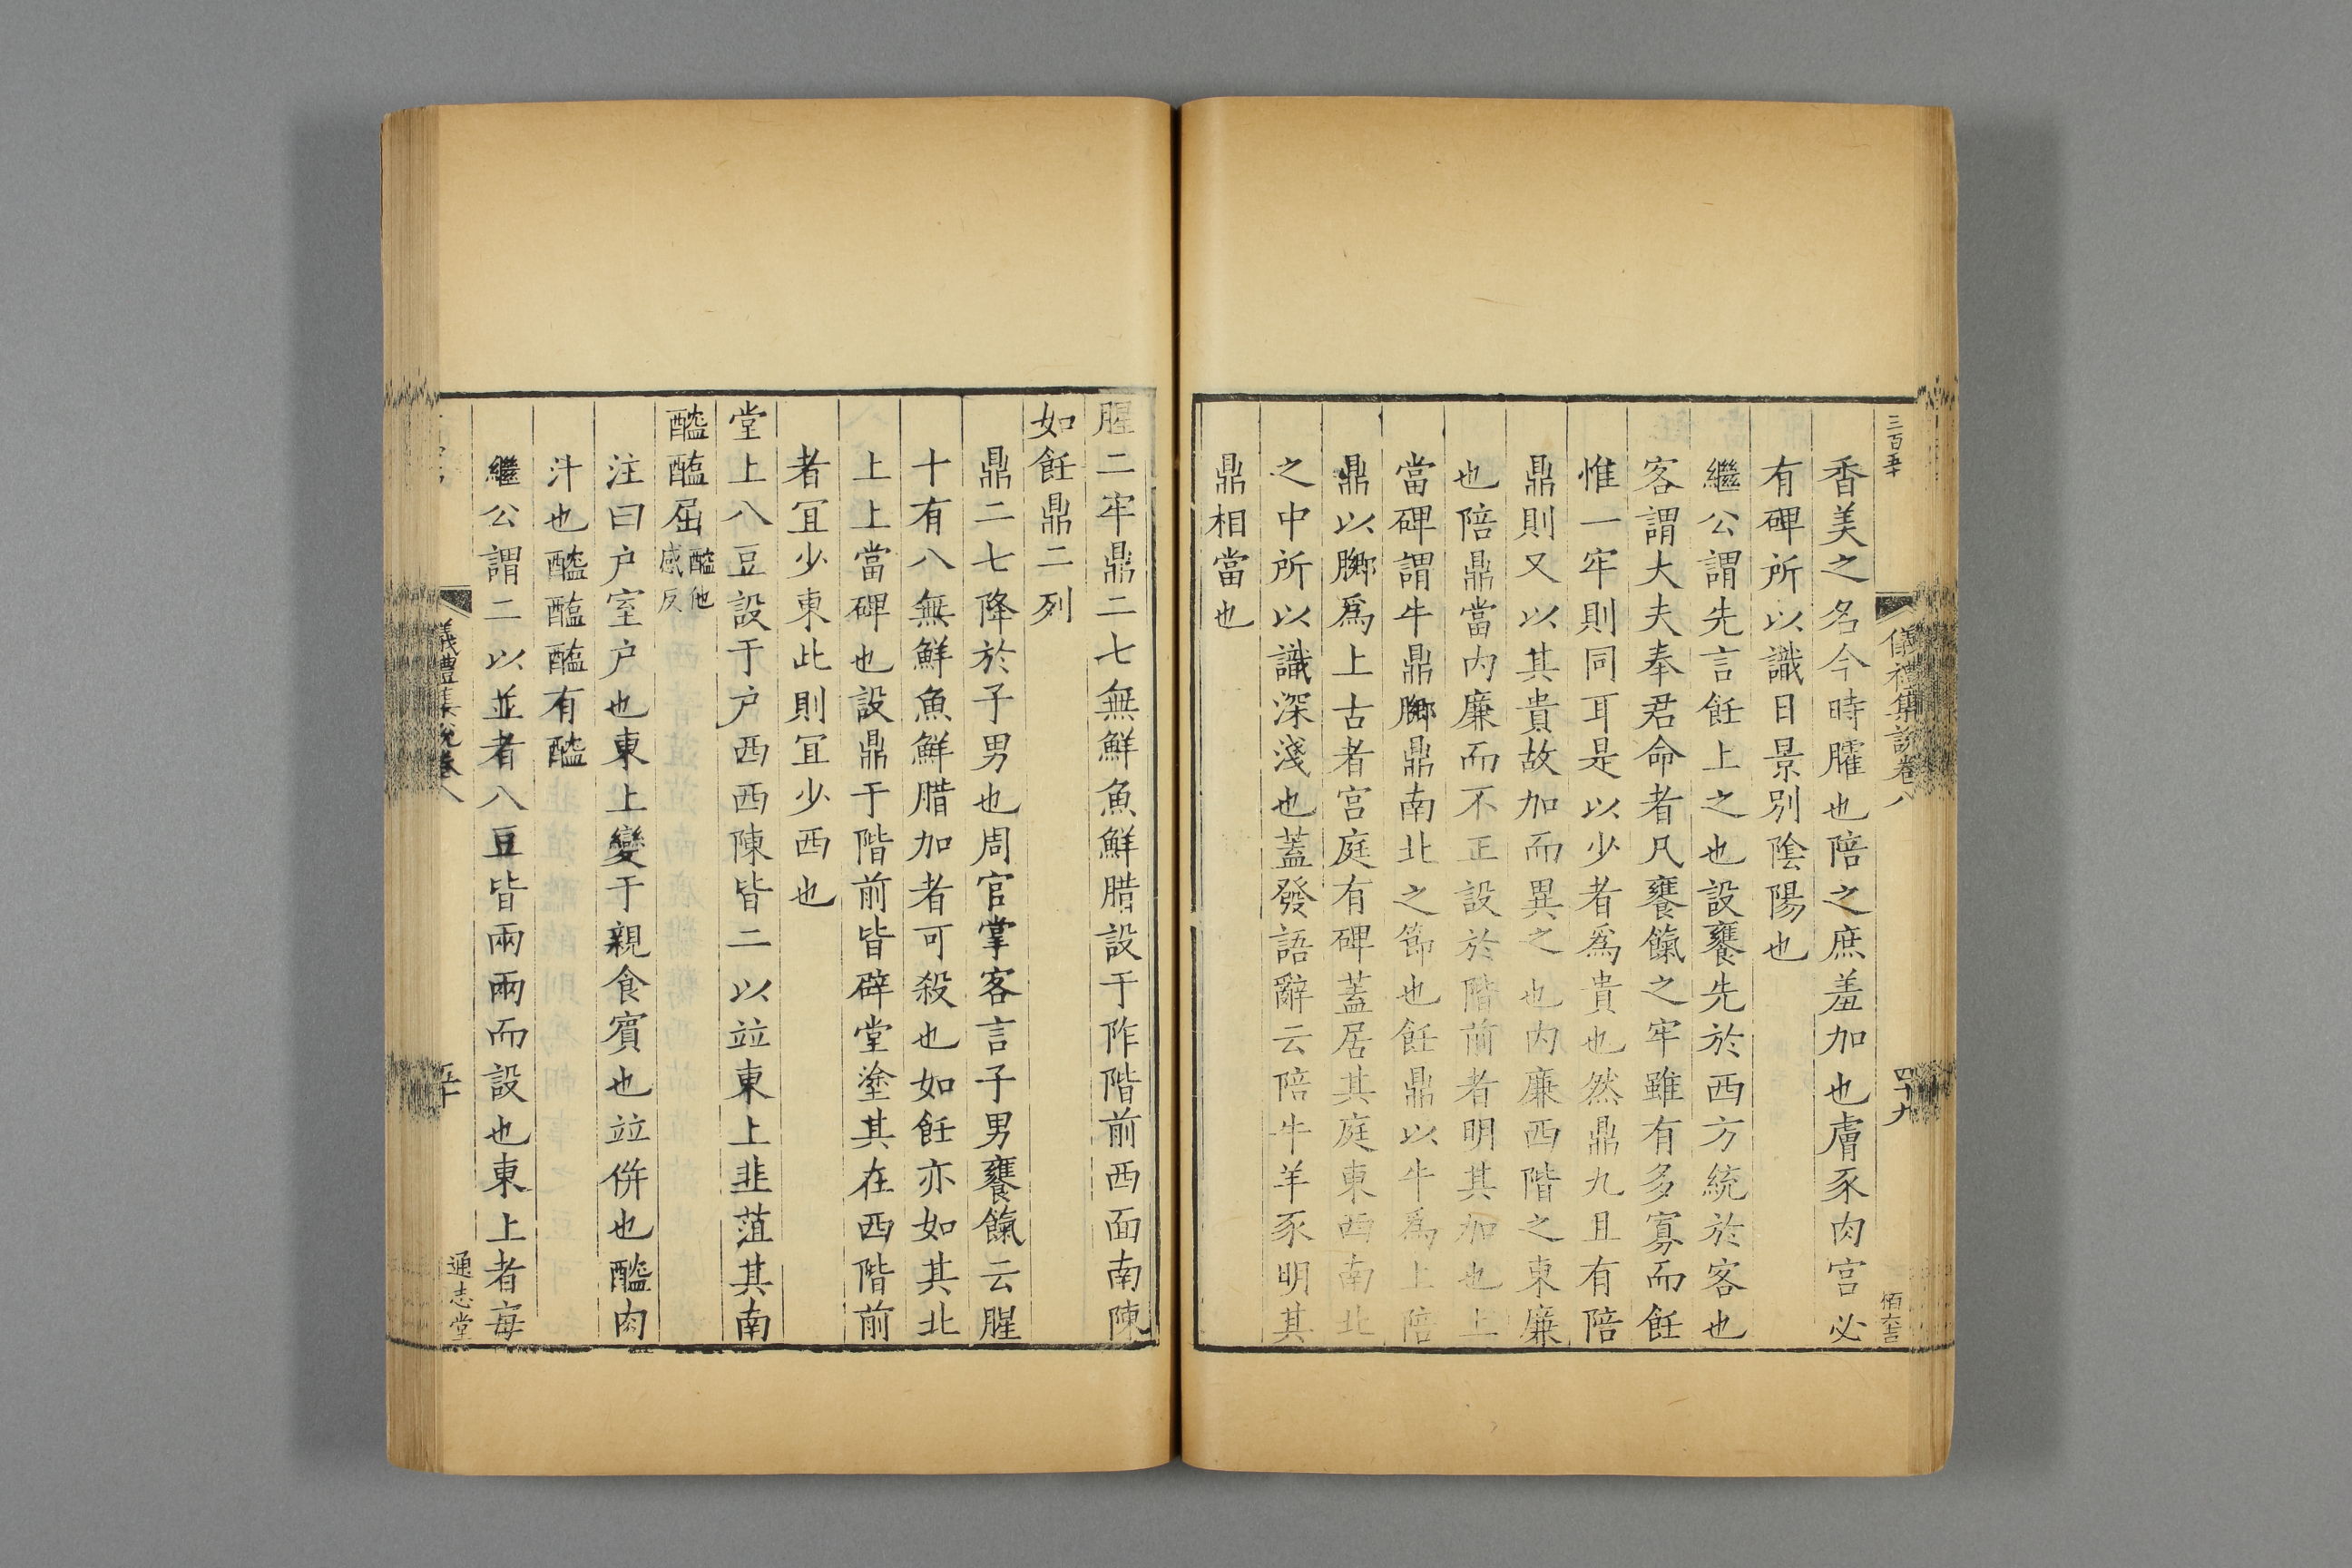 三百五十
儀禮集說卷八
四十九
香美之名今時臛也陪之庶羞加也膚豕肉宮必
有碑所以識日景別陰陽也
繼公謂先言飪上之也設饔先於西方統於客也
客謂大夫奉君命者凡饔餼之牢雖有多寡而飪
惟一牢則同耳是以少者爲貴也然鼎九且有陪
鼎則又以其貴故加而異之也內廉西階之東廉
也陪鼎當內廉而不正設於階前者明其加也上
當碑謂牛鼎膷鼎南北之節也飪鼎以牛爲上陪
鼎以膷爲上古者宮庭有碑蓋居其庭東西南北
之中所以識深淺也蓋發語辭云陪牛羊豕明其
鼎相當也
腥二牢鼎二七無鮮魚鮮腊設于阼階前西面南陳
如飪鼎二列
鼎二七降於子男也周官掌客言子男饔餼云腥
十有八無鮮魚鮮腊加者可殺也如飪亦如其北
上上當碑也設鼎于階前皆辟堂塗其在西階前
者宜少東此則宜少西也
堂上八豆設于戶西西陳皆二以竝東上韭菹其南
醓醢屈醓他感反
注曰戶室戶也東上變于親食賓也竝併也醓肉
汁也醓醢醢有醓
繼公謂二以並者八豆皆兩兩而設也東上者每
儀禮集說卷八
五十
通志堂